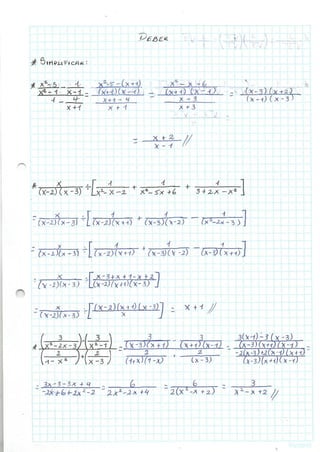 DEBER
* SIMPLIFICAR:
* (x²-5)/(x²-1) - 1/(x-1) / 1 - 4/(x+1) = (x²-5-(x+1))/((x+1)(x-1)) / (x+1-4)/(x+1) = (x²-x-6)/((x+1)(x-1)) / (x-3)/(x+1) = ((x-3)(x+2))/((x-1)(x-3))
= (x+2)/(x-1) //
* x/((x-2)(x-3)) ÷ [1/(x²-x-2) + 1/(x²-5x+6) + 1/(3+2x-x²)]
= x/((x-2)(x-3)) ÷ [1/((x-2)(x+1)) + 1/((x-3)(x-2)) - 1/(x²-2x-3)]
= x/((x-2)(x-3)) ÷ [1/((x-2)(x+1)) + 1/((x-3)(x-2)) - 1/((x-3)(x+1))]
= x/((x-2)(x-3)) ÷ [(x-3+x+1-x+2)/((x-2)(x+1)(x-3))]
= x/((x-2)(x-3)) ÷ [((x-2)(x+1)(x-3))/x] = x+1 //
* (3/(x²-2x-3)) - (3/(x²-1)) / (2/(1-x²)) + (2/(x-3)) = 3/((x-3)(x+1)) - 3/((x+1)(x-1)) / 2/((1+x)(1-x)) + 2/(x-3) = (3(x-1)-3(x-3))/((x-3)(x+1)(x-1)) / (-2(x-3)+2(x-1)(x+1))/((x-3)(x+1)(x-1))
= (3x-3-3x+9)/(-2x+6+2x²-2) = 6/(2x²-2x+4) = 6/(2(x²-x+2)) = 3/(x²-x+2) //